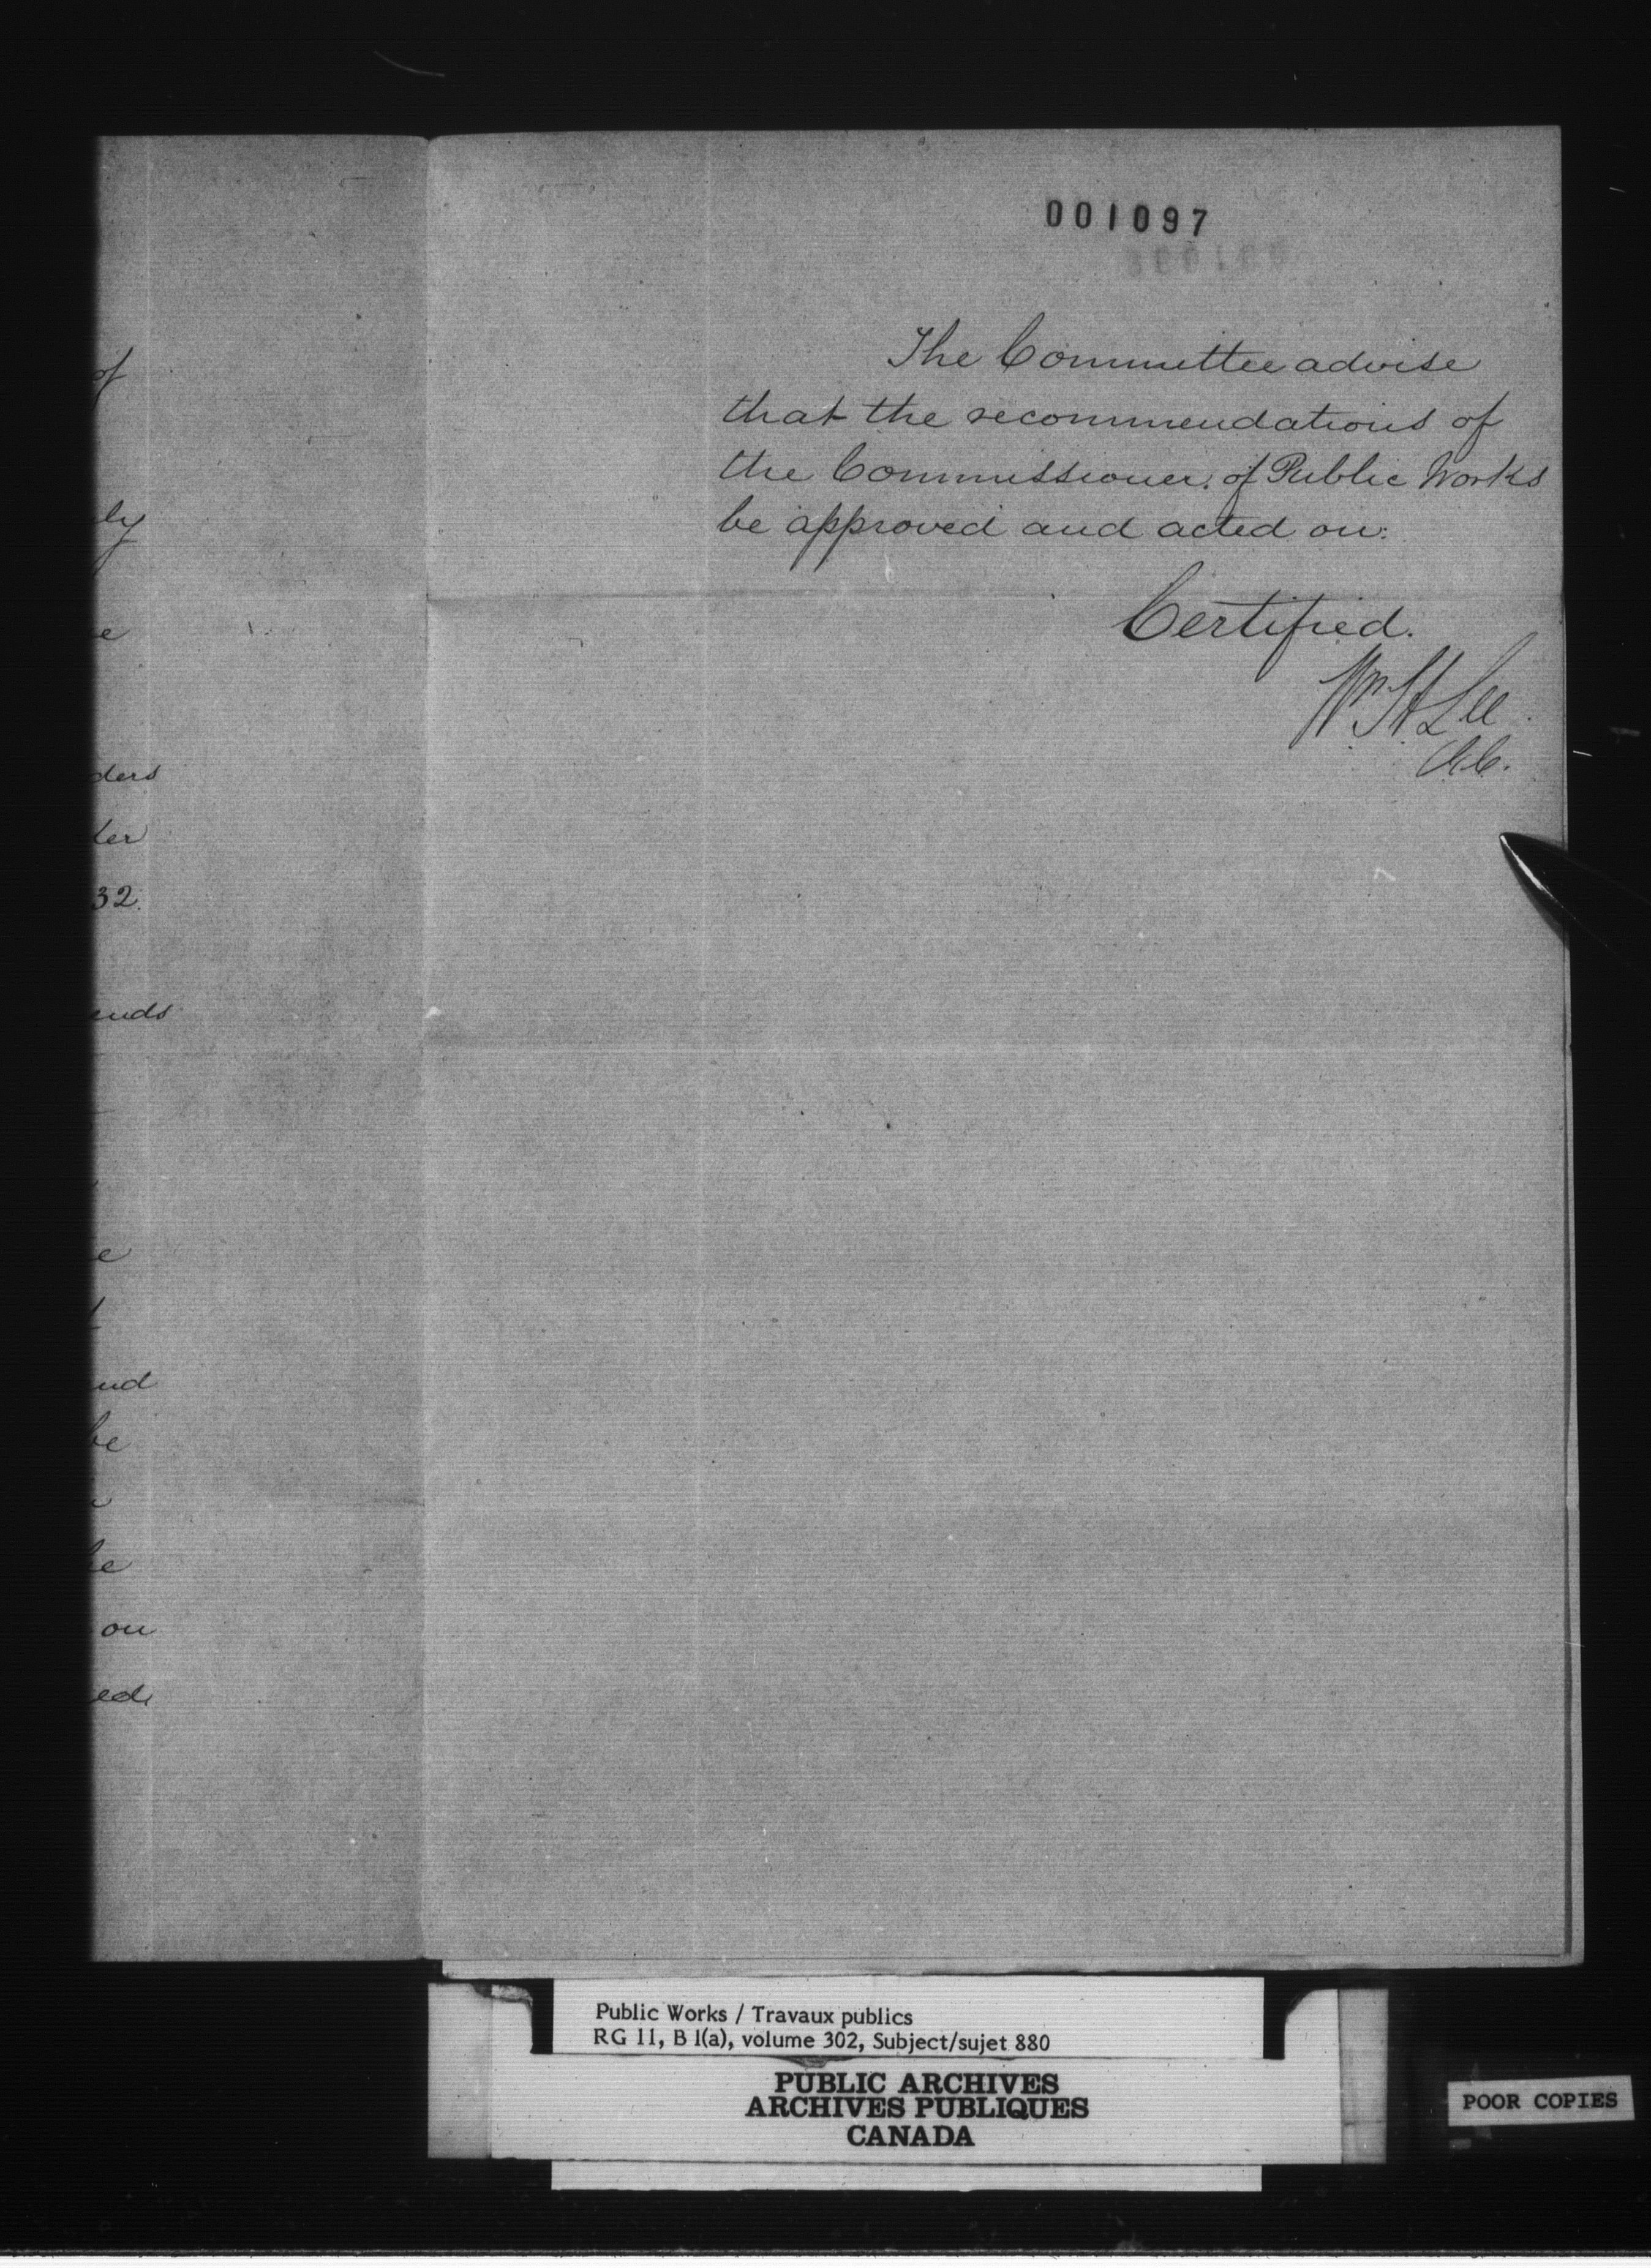 001097
The Committee advise
that the recommendations of
the Commissioner of Public Works
be approved and acted on.
Certified.
Wm H Lee
of
ly
e
ders
ter
32.
ends
e
nd
be
he
on
ed
Public Works / Travaux publics
RG 11, B 1(a), volume 302, Subject/sujet 880
PUBLIC ARCHIVES
ARCHIVES PUBLIQUES
CANADA
POOR COPIES